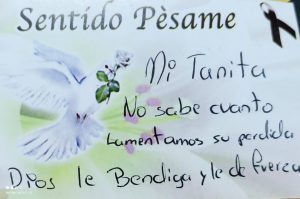 Sentido Pèsame
Mi Tanita
No sabe cuanto
Lamentamos su perdida
Dios le Bendiga y le de fuerza